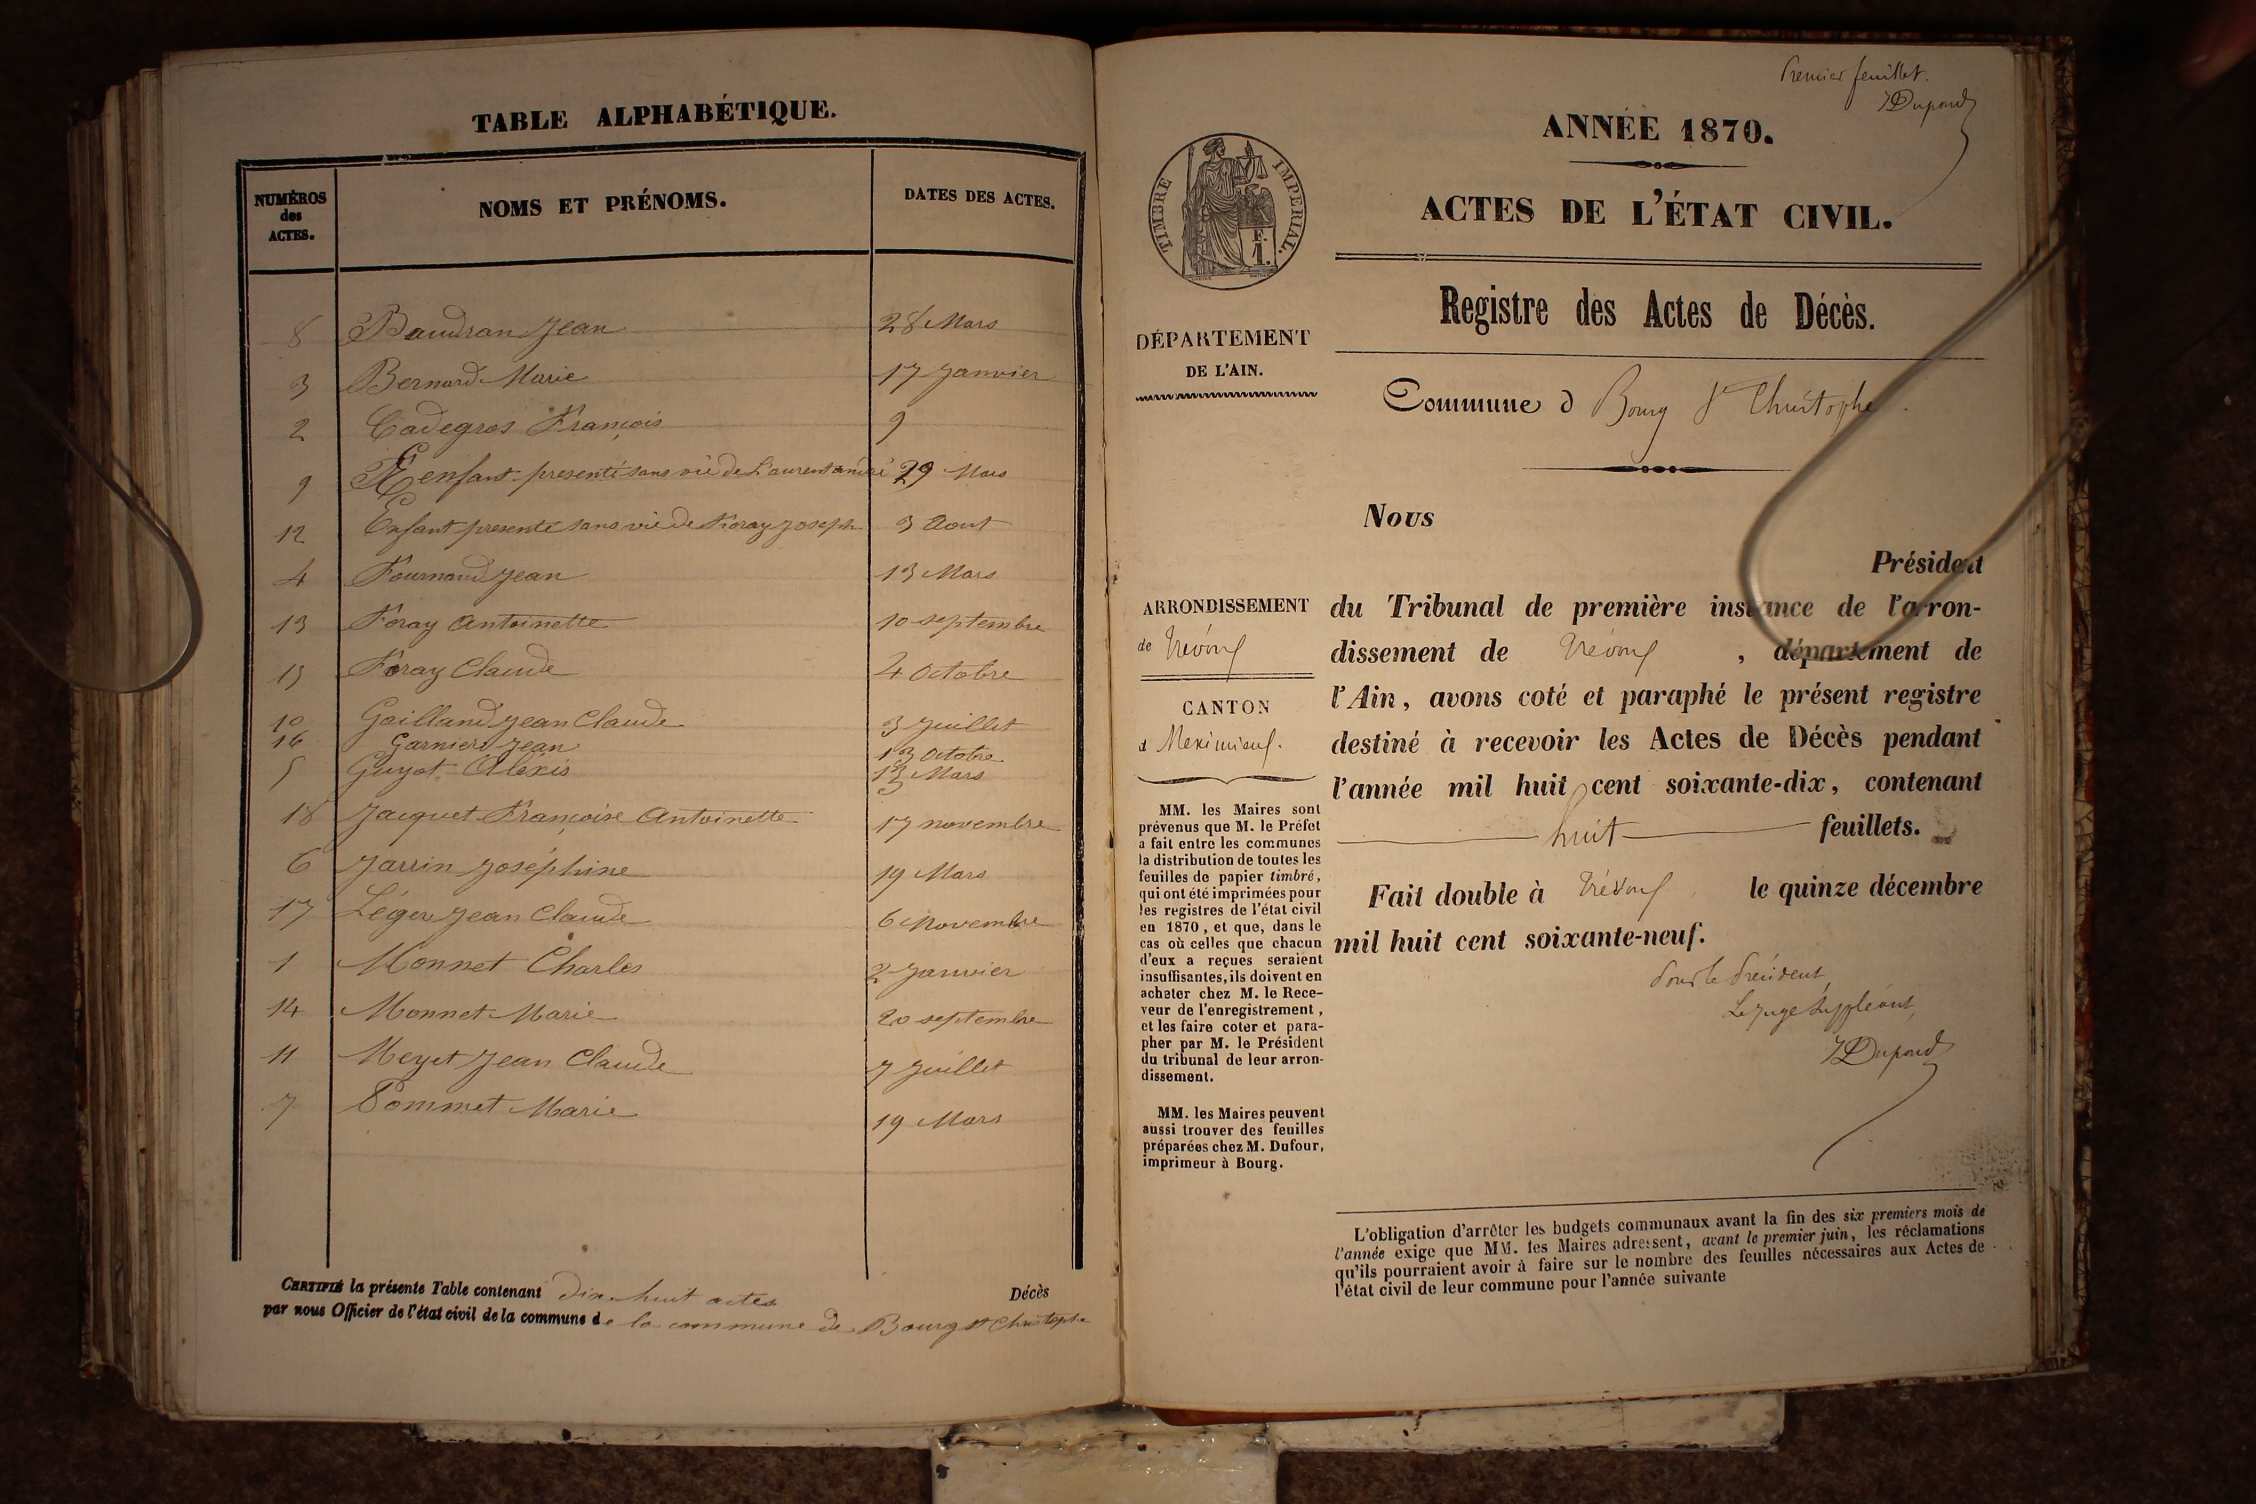 TABLE ALPHABÉTIQUE.
NUMÉROS des ACTES. NOMS ET PRÉNOMS. DATES DES ACTES.
8 Baudran Jean 28 Mars
3 Bernard Marie 17 Janvier
2 Cadegros François 9
9 enfant presenté sans vie de Laurent andré 29 Mars
12 Enfant presenté sans vie de Foray Joseph 3 Aout
4 Fournand Jean 13 Mars
13 Foray Antoinette 10 septembre
15 Foray Claude 4 Octobre
10 Gailland Jean Claude 3 Juillet
16 Garnier Jean 13 Octobre
5 Guyot Alexis 13 Mars
18 Jacquet Françoise Antoinette 17 novembre
6 Jarrin Joséphine 19 Mars
17 Léger Jean Claude 6 Novembre
1 Monnet Charles 2 Janvier
14 Monnet Marie 20 septembre
11 Meyet Jean Claude 7 Juillet
7 Pommet Marie 19 Mars
CERTIFIÉ la présente Table contenant dix huit actes Décès
par nous Officier de l'état civil de la commune de la commune de Bourg St Christophe
Premier feuillet.
Dupond
ANNÉE 1870.
ACTES DE L'ÉTAT CIVIL.
TIMBRE IMPERIAL.
F.
1.
Registre des Actes de Décès.
DÉPARTEMENT
DE L'AIN.
Commune d Bourg St Christophe.
Nous
Président
du Tribunal de première instance de l'arron-
dissement de Trévoux, département de
l'Ain, avons coté et paraphé le présent registre
destiné à recevoir les Actes de Décès pendant
l'année mil huit cent soixante-dix, contenant
huit feuillets.
Fait double à Trévoux le quinze décembre
mil huit cent soixante-neuf.
Pour le Président,
Le Juge Suppléant,
Dupond
ARRONDISSEMENT
de Trévoux
CANTON
d Meximieux.
MM. les Maires sont
prévenus que M. le Préfet
a fait entre les communes
la distribution de toutes les
feuilles de papier timbré,
qui ont été imprimées pour
les registres de l'état civil
en 1870, et que, dans le
cas où celles que chacun
d'eux a reçues seraient
insuffisantes, ils doivent en
acheter chez M. le Rece-
veur de l'enregistrement,
et les faire coter et para-
pher par M. le Président
du tribunal de leur arron-
dissement.
MM. les Maires peuvent
aussi trouver des feuilles
préparées chez M. Dufour,
imprimeur à Bourg.
L'obligation d'arrêter les budgets communaux avant la fin des six premiers mois de
l'année exige que MM. les Maires adressent, avant le premier juin, les réclamations
qu'ils pourraient avoir à faire sur le nombre des feuilles nécessaires aux Actes de
l'état civil de leur commune pour l'année suivante